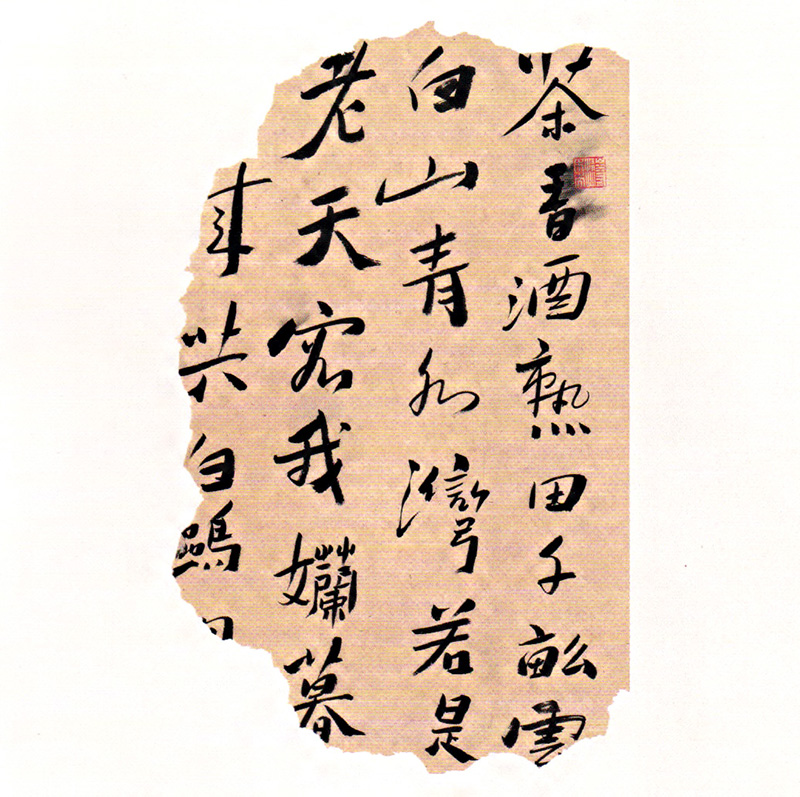 茶香酒熟田千畝雲
白山青水灣若是
老天容我孏暮
年共白鷗閒